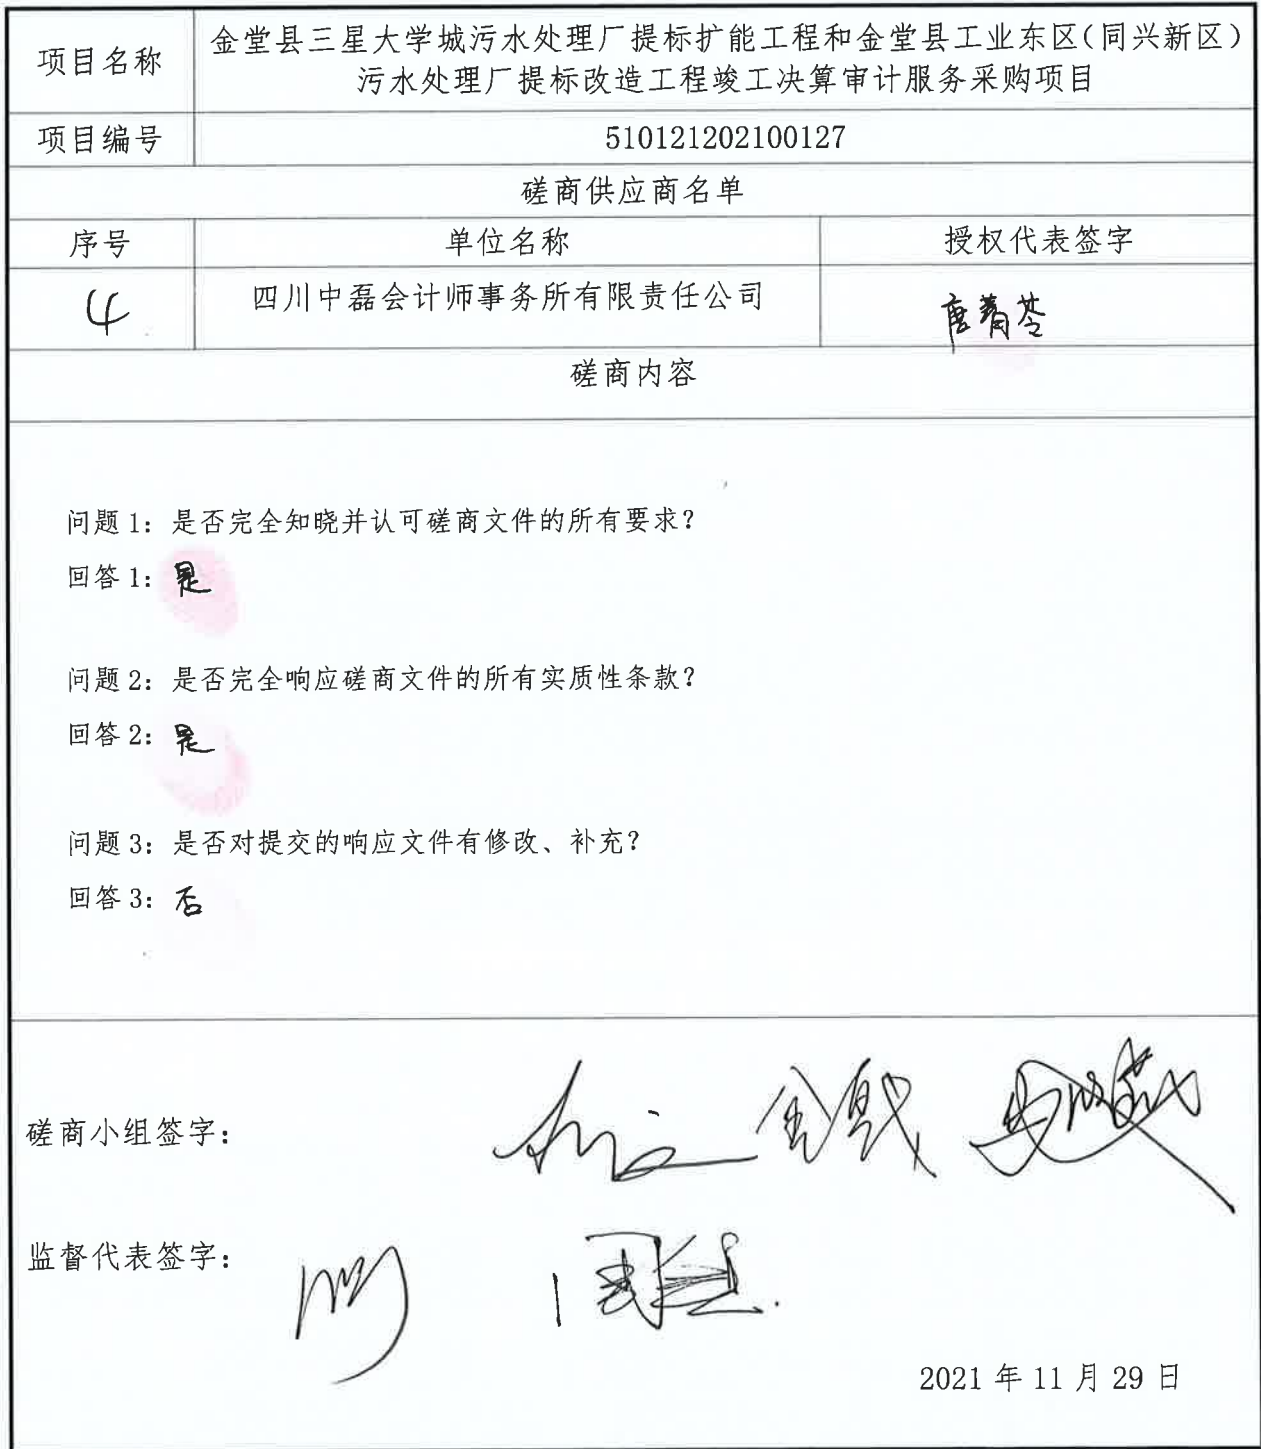 项目名称
金堂县三星大学城污水处理厂提标扩能工程和金堂县工业东区(同兴新区)
污水处理厂提标改造工程竣工决算审计服务采购项目
项目编号
510121202100127
磋商供应商名单
序号 单位名称 授权代表签字
4 四川中磊会计师事务所有限责任公司 唐菁苓
磋商内容
问题1：是否完全知晓并认可磋商文件的所有要求？
回答1：是
问题2：是否完全响应磋商文件的所有实质性条款？
回答2：是
问题3：是否对提交的响应文件有修改、补充？
回答3：否
磋商小组签字：
监督代表签字：
2021年11月29日